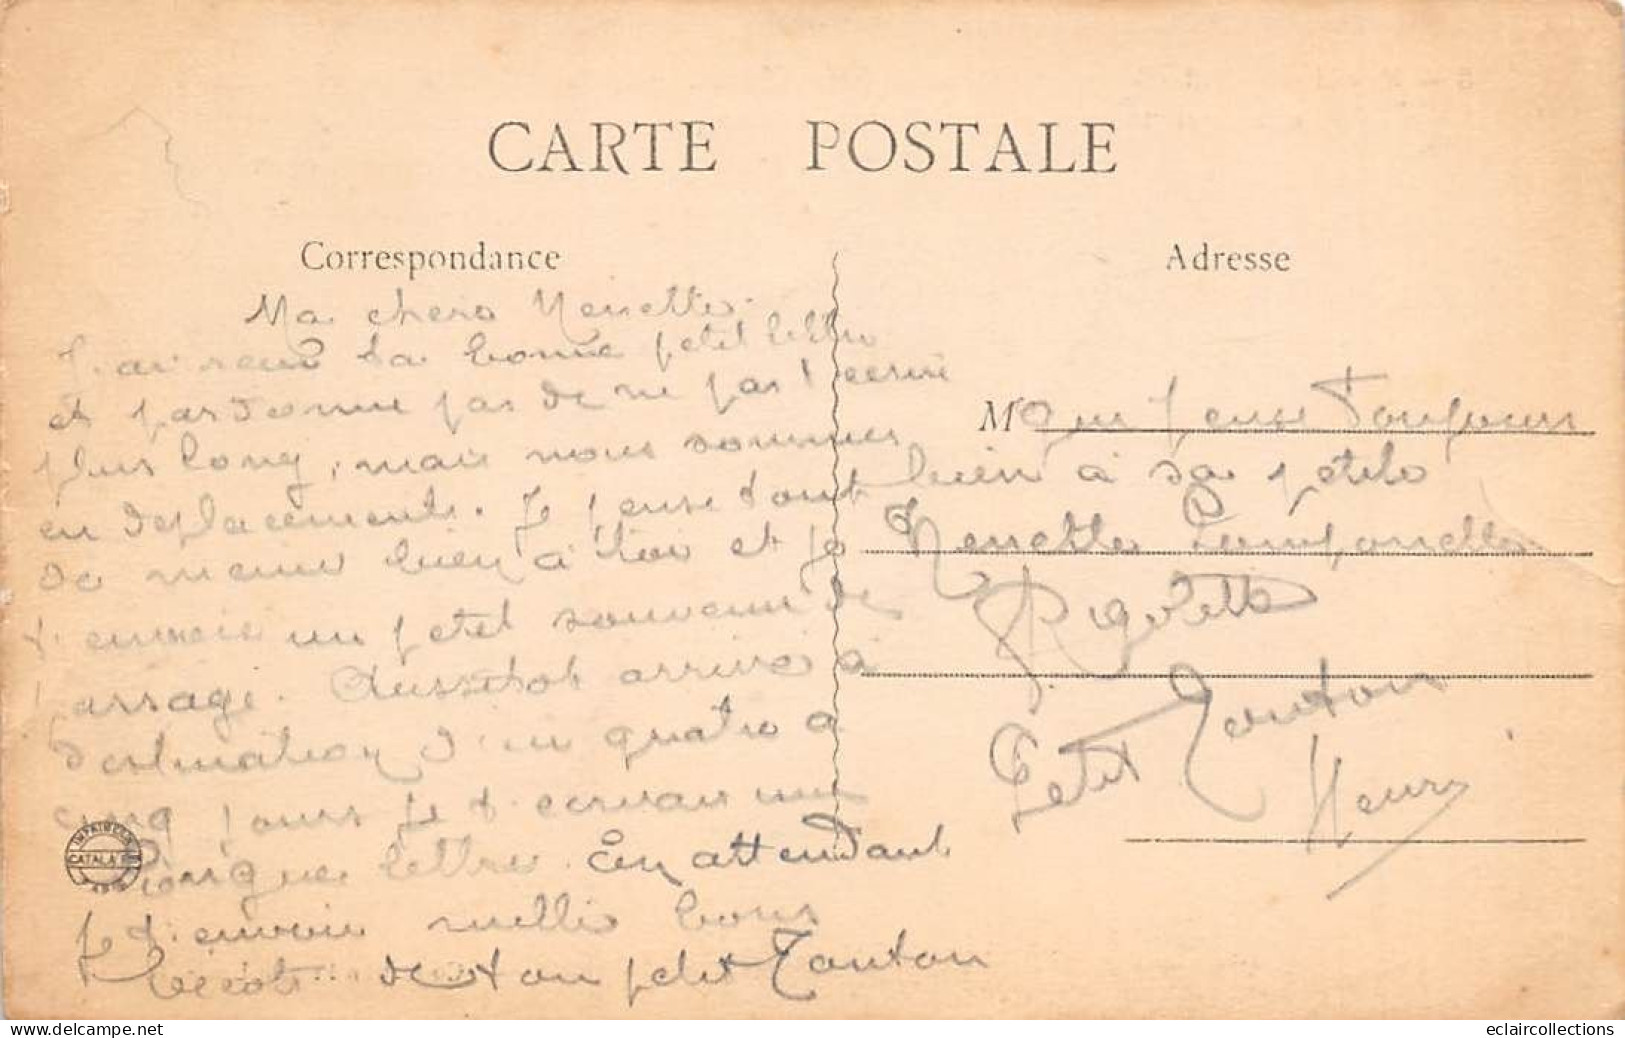 CARTE POSTALE
Correspondance
Ma chere Nenette.
J'ai recu ta bonne petit lettre
et pardonne pas de ne pas t'ecrire
plus long, mais nous sommes
en deplacements. Je pense tout
de meme bien à toi et je
t'envoie un petit souvenir de
passage. Aussitot arrivé à
destination d'ici quatre a
cinq jours je t'ecrivais une
longue lettre. En attendant
je t'envoie mille bons
de ton petit Tonton
IMPRIMERIE
CATALA
Adresse
M qui pense Toujours
bien à sa petite
Nenette
Rigolette
Petit Tonton
Henri
eclaircollections